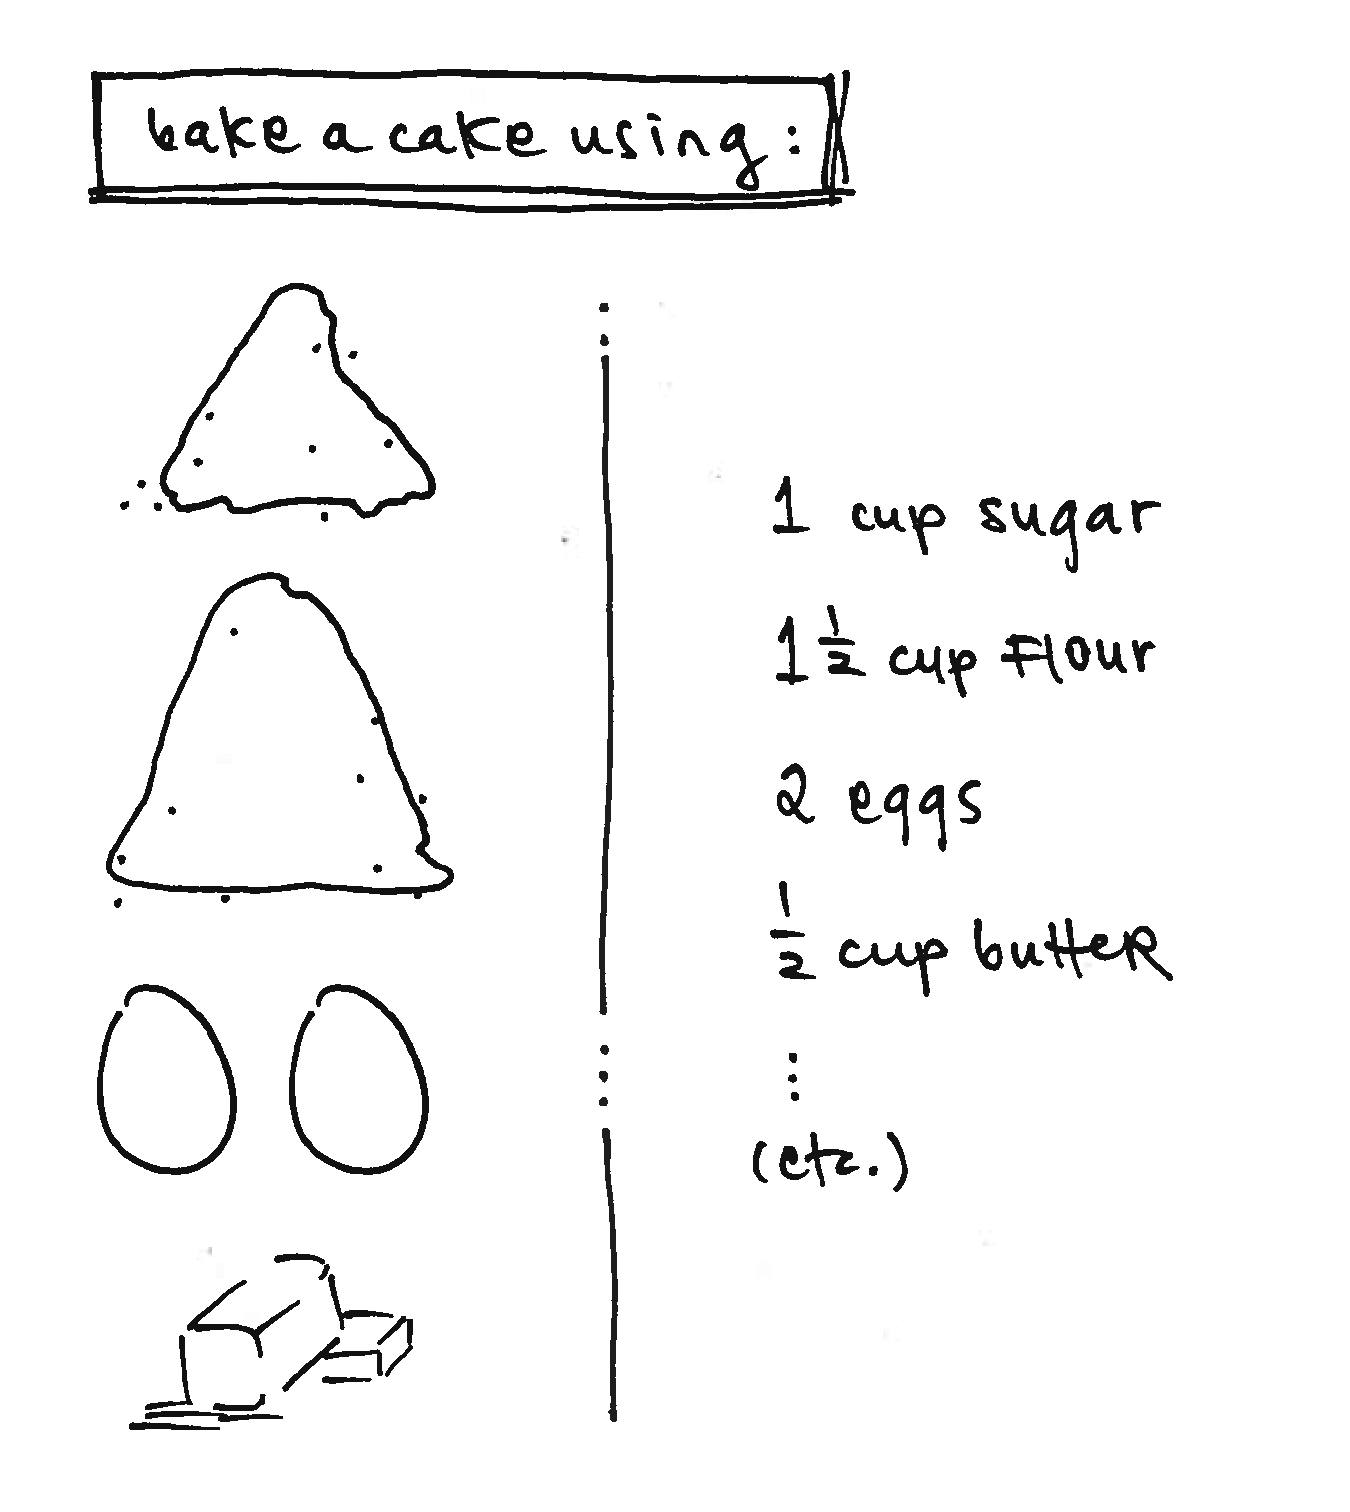 bake a cake using:
1 cup sugar
1 1/2 cup flour
2 eggs
1/2 cup butter
⋮
(etc.)